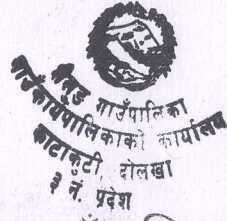 वैतेश्वर गाउँपालिका
गाउँकार्यपालिकाको कार्यालय
काटाकुटी, दोलखा
३ नं. प्रदेश